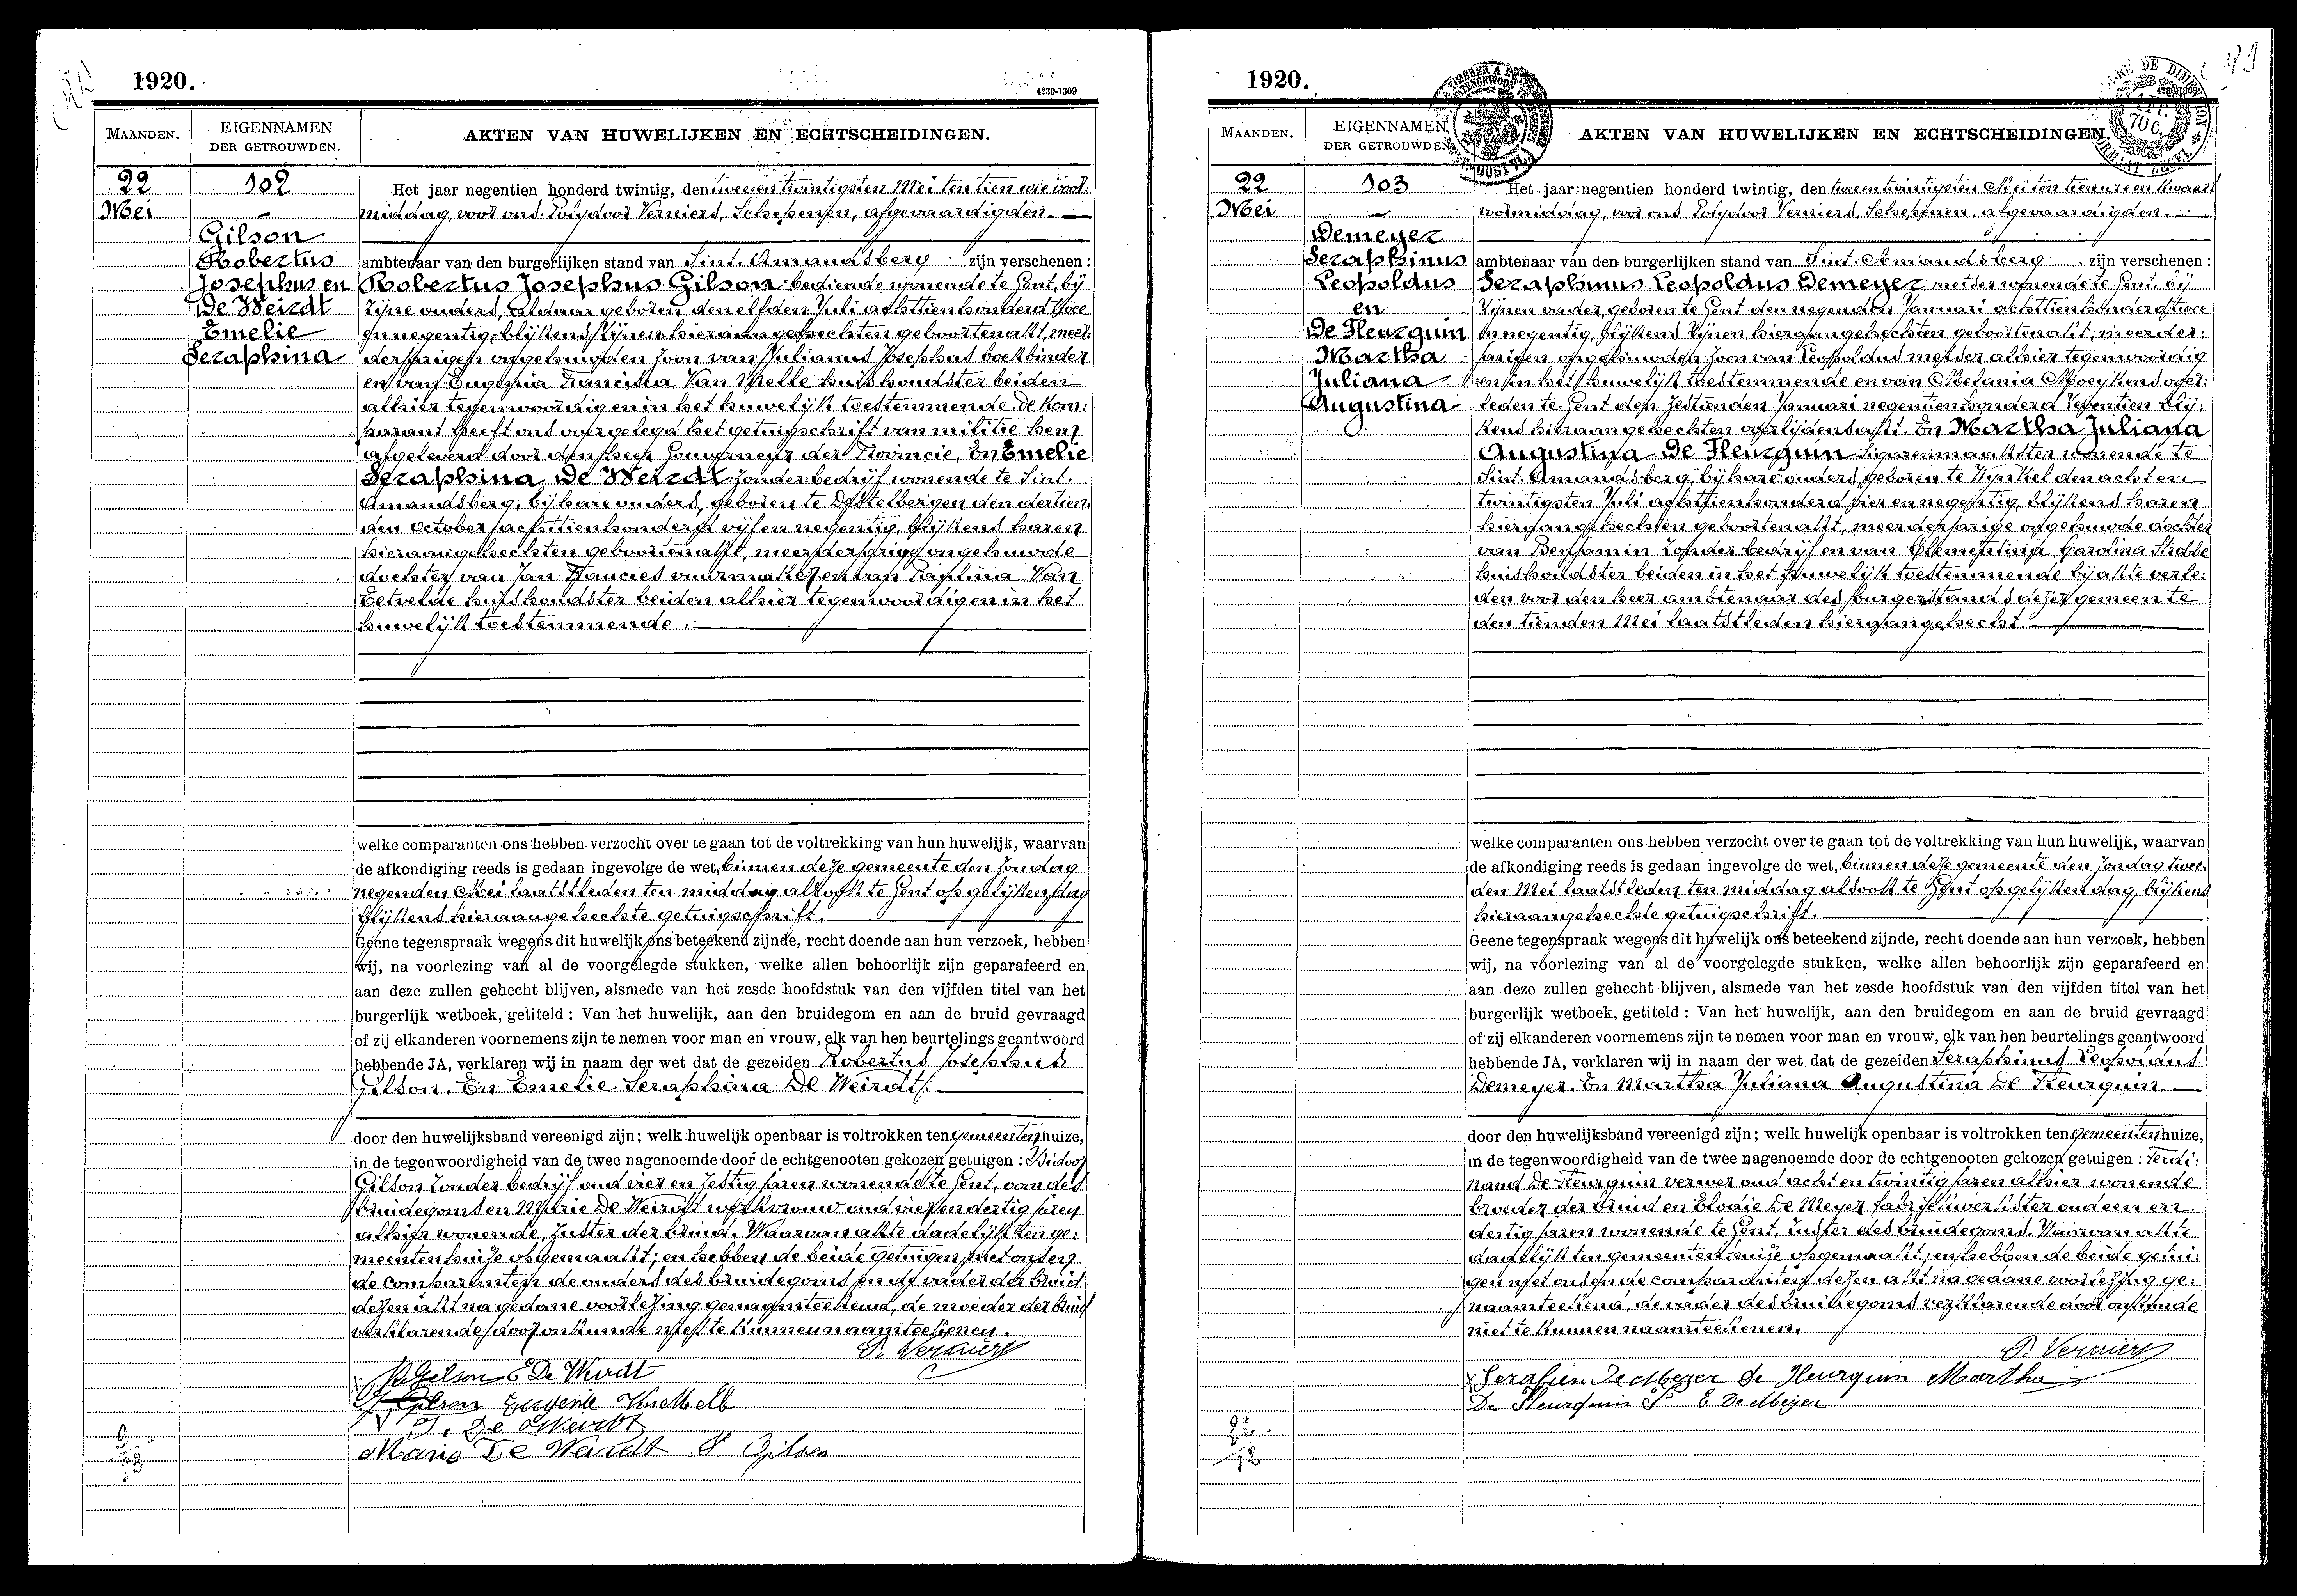 1920.
4230-1309
MAANDEN.
EIGENNAMEN
DER GETROUWDEN.
AKTEN VAN HUWELIJKEN EN ECHTSCHEIDINGEN.
22
Mei
102
Gilson
Robertus
Josephus en
De Weirdt
Emelie
Seraphina
Het jaar negentien honderd twintig, den tweeen twintigsten Mei ten tien ure voor:
middag, voor ons Polydoor Verniers, Schepenen, afgevaardigden.
ambtenaar van den burgerlijken stand van Sint-Amandsberg zijn verschenen:
Robertus Josephus Gilson bediende wonende te Gent, bij
zijne ouders, aldaar geboren den elfden Juli achttienhonderd twee
en negentig, blijkens zijnen hieraan gehechten geboortenakt, meer:
derjarigen ongehuwden zoon van Julianus Josephus boekbinder
en van Eugenia Francisca Van Melle huishoudster beiden
alhier tegenwoordig en in het huwelijk toestemmende. De kom:
parant heeft ons overgelegd het getuigschrift van militie hem
afgeleverd door den heer Gouverneur der Provincie. En Emelie
Seraphina De Weirdt zonder bedrijf wonende te Sint.
Amandsberg, bij hare ouders, geboren te Destelbergen den dertien:
den October achttienhonderd vijf en negentig, blijkens haren
hieraangehechten geboortenakt, meerderjarige ongehuwde
dochter van Jan Francies vuurmaker en van Paulina Van
Eetvelde huishoudster beiden alhier tegenwoordig en in het
huwelijk toestemmende.
welke comparanten ons hebben verzocht over te gaan tot de voltrekking van hun huwelijk, waarvan
de afkondiging reeds is gedaan ingevolge de wet, binnen deze gemeente den Zondag
negenden Mei laatstleden ten middag alsook te Gent op gelijken dag
blijkens hieraangehechte getuigschrift.
Geene tegenspraak wegens dit huwelijk ons beteekend zijnde, recht doende aan hun verzoek, hebben
wij, na voorlezing van al de voorgelegde stukken, welke allen behoorlijk zijn geparafeerd en
aan deze zullen gehecht blijven, alsmede van het zesde hoofdstuk van den vijfden titel van het
burgerlijk wetboek, getiteld : Van het huwelijk, aan den bruidegom en aan de bruid gevraagd
of zij elkanderen voornemens zijn te nemen voor man en vrouw, elk van hen beurtelings geantwoord
hebbende JA, verklaren wij in naam der wet dat de gezeiden Robertus Josephus
Gilson. En Emelie Seraphina De Weirdt.
door den huwelijksband vereenigd zijn; welk huwelijk openbaar is voltrokken ten gemeentenhuize,
in de tegenwoordigheid van de twee nagenoemde door de echtgenooten gekozen getuigen : Isidoor
Gilson zonder bedrijf oud vier en zestig jaren wonende te Gent, oom des
bruidegoms en Marie De Weirdt werkvrouw oud vier en dertig jaren
alhier wonende, zuster der bruid. Waarvan akte dadelijk ten ge:
meentenhuize opgemaakt; en hebben de beide getuigen met ons en
de comparanten de ouders des bruidegoms en de vader der bruid
dezen akt na gedane voorlezing genaamteekend, de moeder der bruid
verklarende door onkunde niet te kunnen naamteekenen.
P. Verniers
R. Gilson E De Weirdt
J. Gilson Eugenie Van Melle
J. De Weirdt
Marie De Weirdt I Gilson
1920.
MAANDEN.
EIGENNAMEN
DER GETROUWDEN
AKTEN VAN HUWELIJKEN EN ECHTSCHEIDINGEN.
22
Mei
103
Demeyer
Seraphinus
Leopoldus
en
De Fleurquin
Martha
Juliana
Augustina
Het jaar negentien honderd twintig, den tweeentwintigsten Mei ten tien ure en kwaart
voormiddag, voor ons Polydoor Verniers, Schepenen afgevaardigden.
ambtenaar van den burgerlijken stand van Sint-Amandsberg zijn verschenen :
Seraphinus Leopoldus Demeyer metser wonende te Gent, bij
zijnen vader, geboren te Gent den negenden Januari achttienhonderd twee
en negentig, blijkens zijnen hieraangehechten geboortenakt, meerder:
jarigen ongehuwden zoon van Leopoldus metser alhier tegenwoordig
en in het huwelijk toestemmende en van Melania Moeykens over:
leden te Gent den zestienden Januari negentienhonderd zeventien blij:
kens hieraangehechten overlijdensakt. En Martha Juliana
Augustina De Fleurquin sigarenmaakster wonende te
Sint-Amandsberg, bij hare ouders, geboren te Wynkel den acht en
twintigsten Juli achttienhonderd vier en negentig, blijkens haren
hieraangehechten geboortenakt, meerderjarige ongehuwde dochter
van Benjamin zonder bedrijf en van Clementina Carolina Strobbe
huishoudster beiden in het huwelijk toestemmende bij akte verle:
den voor den heer ambtenaar des burgerstands dezer gemeente
den tienden Mei laatstleden hieraangehecht.
welke comparanten ons hebben verzocht over te gaan tot de voltrekking van hun huwelijk, waarvan
de afkondiging reeds is gedaan ingevolge de wet, binnen deze gemeente den Zondag twee:
den Mei laatstleden ten middag alsook te Gent op gelijken dag, blijkens
hieraangehechte getuigschrift.
Geene tegenspraak wegens dit huwelijk ons beteekend zijnde, recht doende aan hun verzoek, hebben
wij, na voorlezing van al de voorgelegde stukken, welke allen behoorlijk zijn geparafeerd en
aan deze zullen gehecht blijven, alsmede van het zesde hoofdstuk van den vijfden titel van het
burgerlijk wetboek, getiteld : Van het huwelijk, aan den bruidegom en aan de bruid gevraagd
of zij elkanderen voornemens zijn te nemen voor man en vrouw, elk van hen beurtelings geantwoord
hebbende JA, verklaren wij in naam der wet dat de gezeiden Seraphinus Leopoldus
Demeyer. En Martha Juliana Augustina De Fleurquin.
door den huwelijksband vereenigd zijn; welk huwelijk openbaar is voltrokken ten gemeentenhuize,
in de tegenwoordigheid van de twee nagenoemde door de echtgenooten gekozen getuigen : Ferdi:
nand De Fleurquin verwer oud acht en twintig jaren alhier wonende
broeder der bruid en Elodie De Meyer fabriekwerkster oud een en
dertig jaren wonende te Gent, zuster des bruidegoms. Waarvan akte
dadelijk ten gemeentenhuize opgemaakt; en hebben de beide getui:
gen met ons en de comparanten dezen akt na gedane voorlezing ge:
naamteekend, de vader des bruidegoms verklarende door onkunde
niet te kunnen naamteekenen.
P. Verniers
Serafien De Meyer De Fleurquin Martha
De Fleurquin F E De Meyer